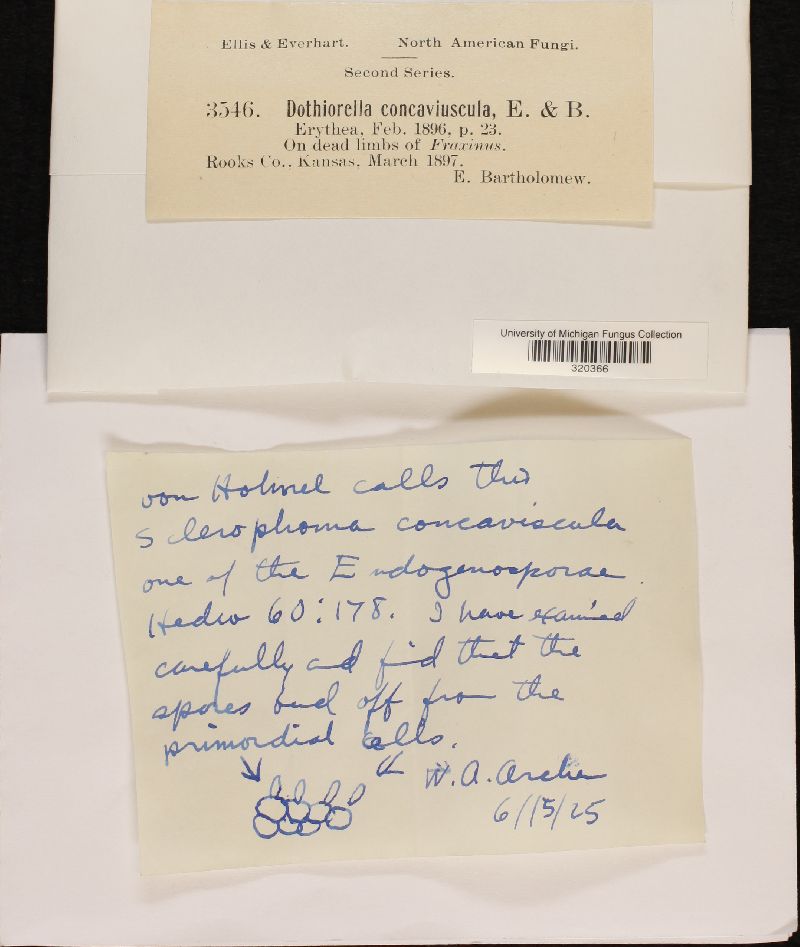 Ellis & Everhart. North American Fungi.
Second Series.
3546. Dothiorella concaviuscula, E. & B.
Erythea, Feb. 1896, p. 23.
On dead limbs of Fraxinus.
Rooks Co., Kansas, March 1897.
E. Bartholomew.
University of Michigan Fungus Collection
320366
von Hohnel calls this
Sclerophoma concaviscula
one of the Endogenosporae.
Hedw 60:178. I have examined
carefully and find that the
spores bud off from the
primordial cells.
W. A. Archer
6/15/25